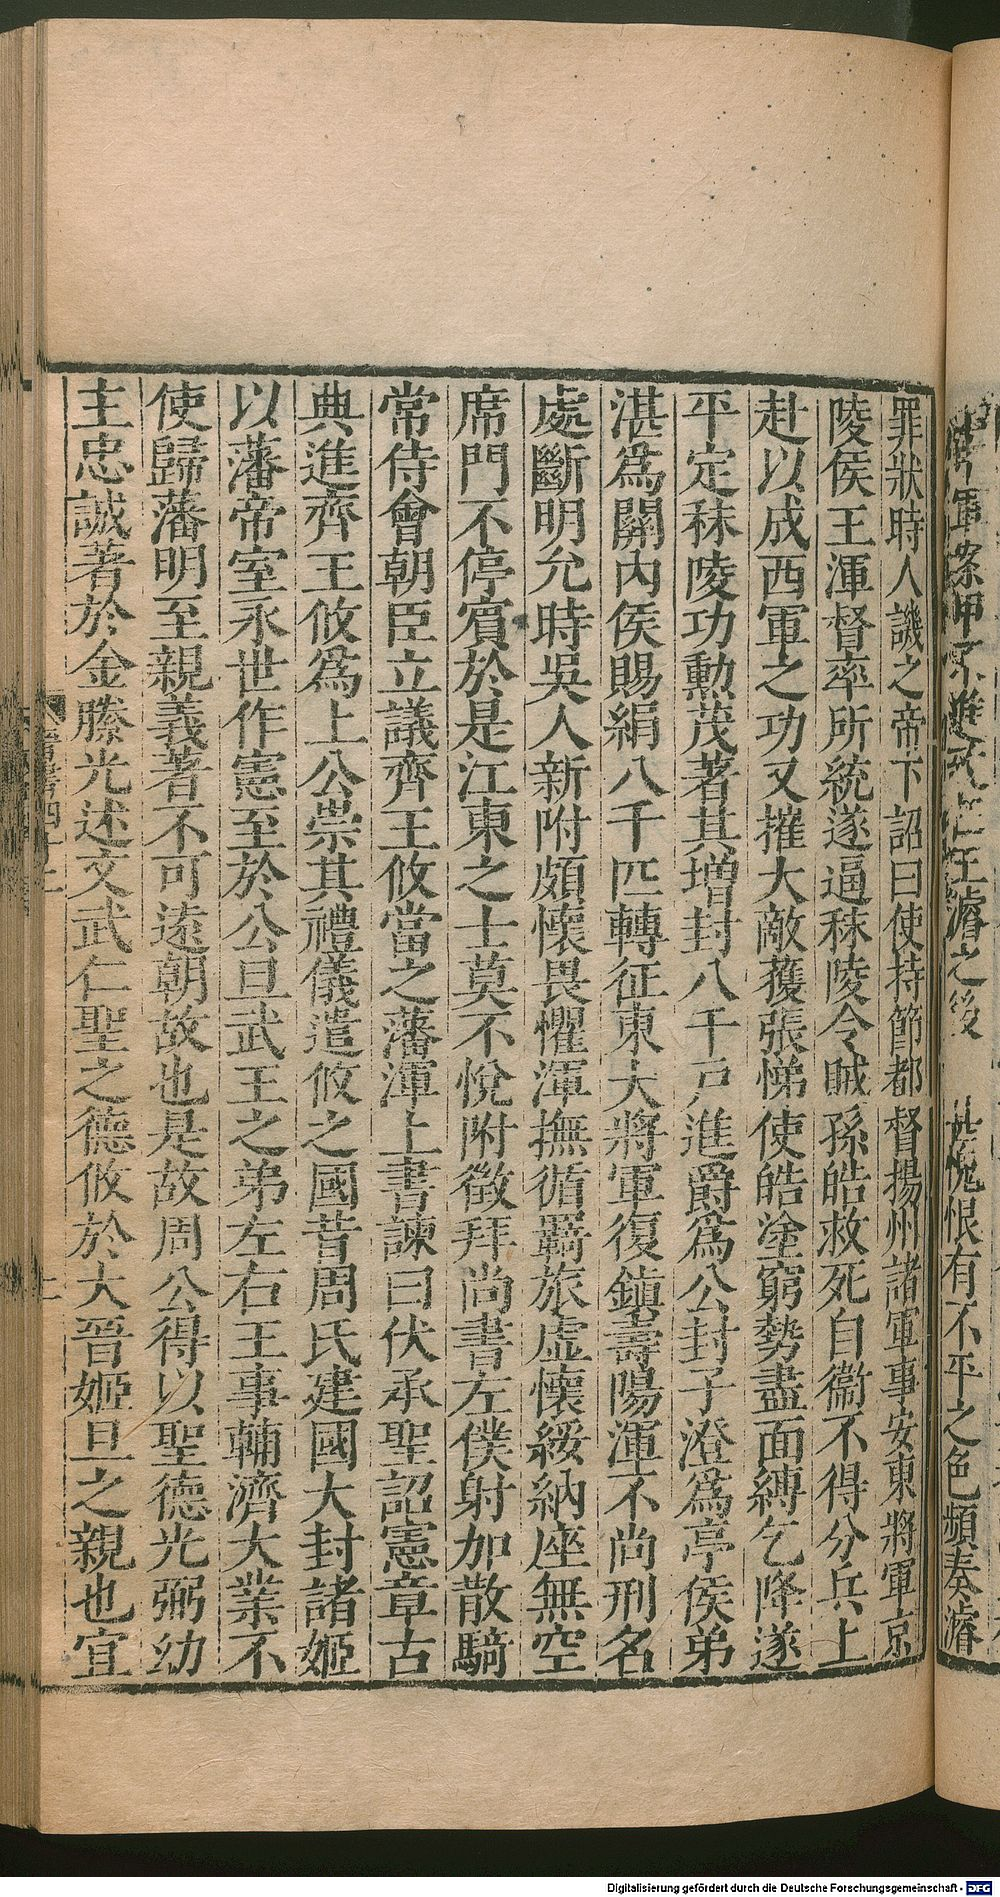 罪狀時人譏之帝下詔曰使持節都督揚州諸軍事安東將軍京
陵侯王渾督率所統遂逼秣陵令賊孫皓救死自衞不得分兵上
赴以成西軍之功又摧大敵獲張悌使皓塗窮勢盡面縛乞降遂
平定秣陵功勲茂著其增封八千戸進爵爲公封子澄爲亭侯弟
湛爲關內侯賜絹八千匹轉征東大將軍復鎮壽陽渾不尚刑名
處斷明允時吳人新附頗懷畏懼渾撫循羇旅虛懷綏納座無空
席門不停賓於是江東之士莫不悅附徵拜尚書左僕射加散騎
常侍會朝臣立議齊王攸當之藩渾上書諫曰伏承聖詔憲章古
典進齊王攸爲上公崇其禮儀遣攸之國昔周氏建國大封諸姬
以藩帝室永世作憲至於公旦武王之弟左右王事輔濟大業不
使歸藩明至親義著不可遠朝故也是故周公得以聖德光弼幼
主忠誠著於金縢光述文武仁聖之德攸於大晉姬旦之親也宜
Digitalisierung gefördert durch die Deutsche Forschungsgemeinschaft - DFG